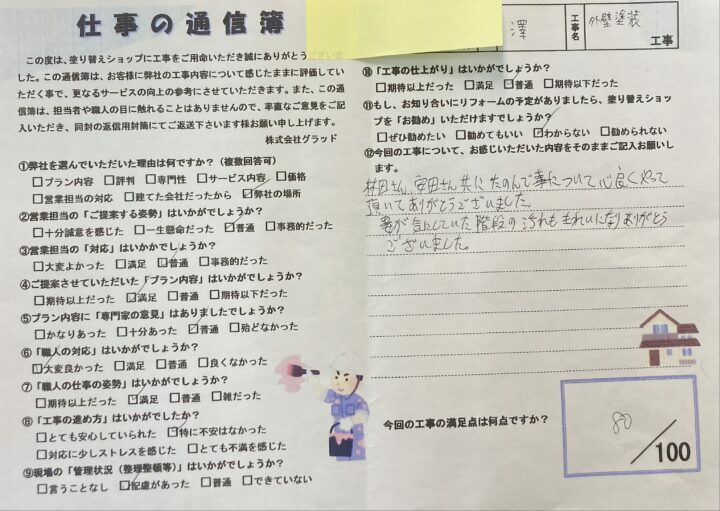 仕事の通信簿
この度は、塗り替えショップに工事をご用命いただき誠にありがとう
した。この通信簿は、お客様に弊社の工事内容について感じたままに評価してい
ただく事で、更なるサービスの向上の参考にさせていただきます。また、この通
信簿は、担当者や職人の目に触れることはありませんので、率直なご意見をご記
入いただき、同封の返信用封筒にてご返送下さいます様お願い申し上げます。
株式会社グラッド
①弊社を選んでいただいた理由は何ですか？（複数回答可）
□プラン内容 □評判 □専門性 □サービス内容 □価格
□営業担当の対応 □建てた会社だったから ☑弊社の場所
②営業担当の「ご提案する姿勢」はいかがでしょうか？
□十分誠意を感じた □一生懸命だった ☑普通 □事務的だった
③営業担当の「対応」はいかかでしょうか？
□大変よかった □満足 ☑普通 □事務的だった
④ご提案させていただいた「プラン内容」はいかがでしょうか？
□期待以上だった ☑満足 □普通 □期待以下だった
⑤プラン内容に「専門家の意見」はありましたでしょうか？
□かなりあった □十分あった ☑普通 □殆どなかった
⑥「職人の対応」はいかがでしょうか？
☑大変良かった □満足 □普通 □良くなかった
⑦「職人の仕事の姿勢」はいかがでしょうか？
□期待以上だった ☑満足 □普通 □雑だった
⑧「工事の進め方」はいかがでしたか？
□とても安心していられた ☑特に不安はなかった
□対応に少しストレスを感じた □とても不満を感じた
⑨現場の「管理状況（整理整頓等）」はいかがでしょうか？
□言うことなし ☑配慮があった □普通 □できていない
澤
工事名
外壁塗装
工事
⑩「工事の仕上がり」はいかがでしょうか？
□期待以上だった □満足 ☑普通 □期待以下だった
⑪もし、お知り合いにリフォームの予定がありましたら、塗り替えショッ
プを「お勧め」いただけますでしょうか？
□ぜひ勧めたい □勧めてもいい ☑わからない □勧められない
⑫今回の工事について、お感じいただいた内容をそのままご記入お願いし
ます。
林田さん、安田さん共にたのんで事について心良くやって
頂いてありがとうございました。
妻が気にしていた階段の汚れもきれいになりありがとう
ございました。
今回の工事の満足点は何点ですか？
80
/100